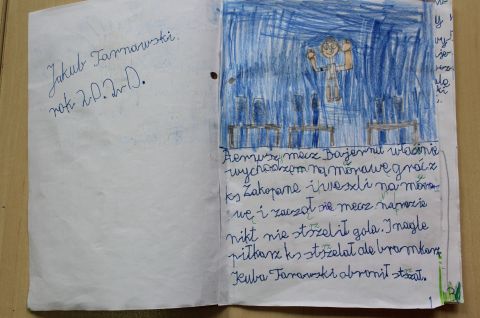 Jakub Tarnawski.
rok 2D.2D.
Pierwszy mecz Bajernu właśnie
wychodzom na murawę grać z
ks Zakopane i weszli na mura-
wę i zaczoł się mecz na razie
nikt nie strzelił gola. I nagle
piłkarz ks strzelał ale bramkarz
Kuba Tarnawski obronił strzał.
1